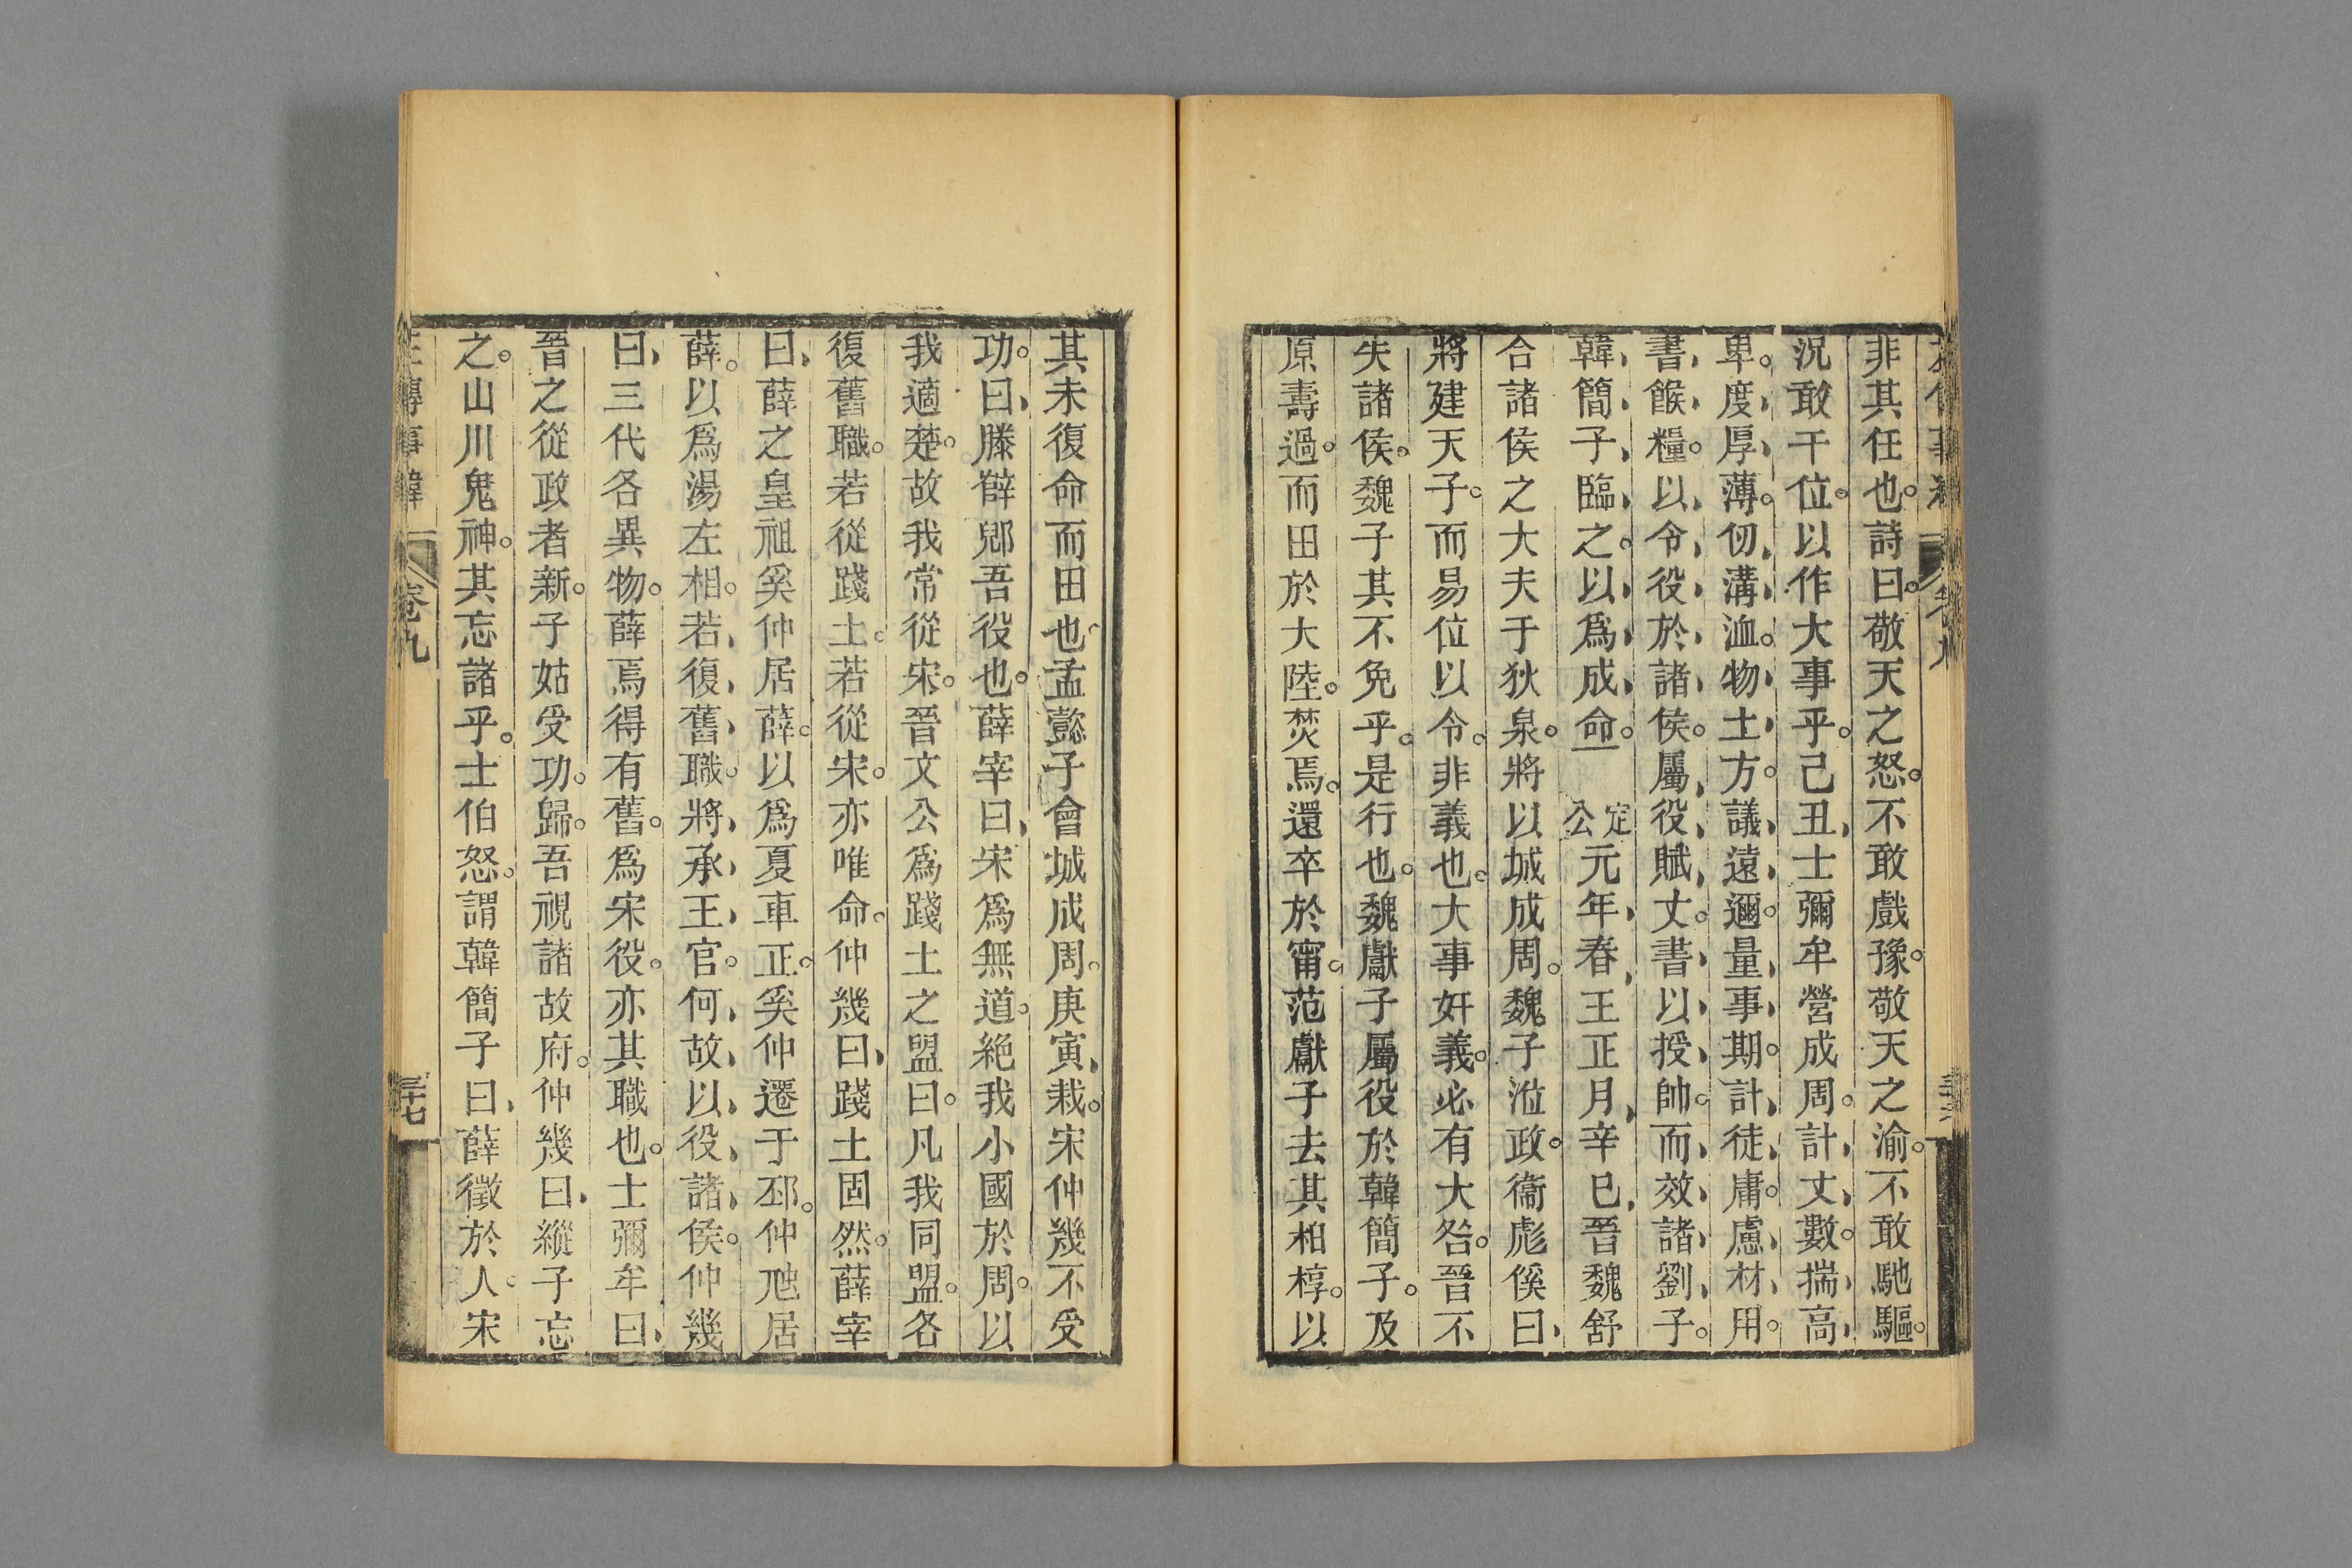 非其任也。詩曰。敬天之怒。不敢戲豫。敬天之渝。不敢馳驅。
況敢干位。以作大事乎。己丑、士彌牟營成周。計、丈、數。揣、高、
卑。度、厚、薄。仞、溝、洫。物、土、方。議、遠、邇。量、事、期。計、徒、庸。慮、材、用。
書、餱、糧。以、令、役、於、諸、侯。屬、役、賦、丈。書、以、授、帥。而、效、諸、劉、子。
韓、簡、子、臨、之。以、爲、成、命。定公元年、春、王正月、辛巳、晉魏舒
合諸侯之大夫于狄泉。將以城成周。魏子涖政。衞彪傒曰、
將建天子。而易位以令。非義也。大事奸義。必有大咎。晉不
失諸侯。魏子其不免乎。是行也。魏獻子屬役於韓簡子。及
原壽過。而田於大陸。焚焉。還卒於甯。范獻子去其柏椁。以
其未復命而田也。孟懿子會城成周。庚寅、栽。宋仲幾不受
功。曰、滕薛郳吾役也。薛宰曰、宋爲無道。絶我小國於周。以
我適楚。故我常從宋。晉文公爲踐土之盟曰。凡我同盟。各
復舊職。若從踐土。若從宋。亦唯命。仲幾曰、踐土固然。薛宰
曰、薛之皇祖奚仲居薛。以爲夏車正。奚仲遷于邳。仲虺居
薛。以爲湯左相。若、復、舊、職。將、承、王、官。何、故、以、役、諸、侯。仲幾
曰、三代各異物。薛焉得有舊。爲宋役。亦其職也。士彌牟曰、
晉之從政者新。子姑受功。歸。吾視諸故府。仲幾曰、縱子忘
之。山川鬼神。其忘諸乎。士伯怒。謂韓簡子曰、薛徵於人。宋
左傳事緯
卷九
三十七